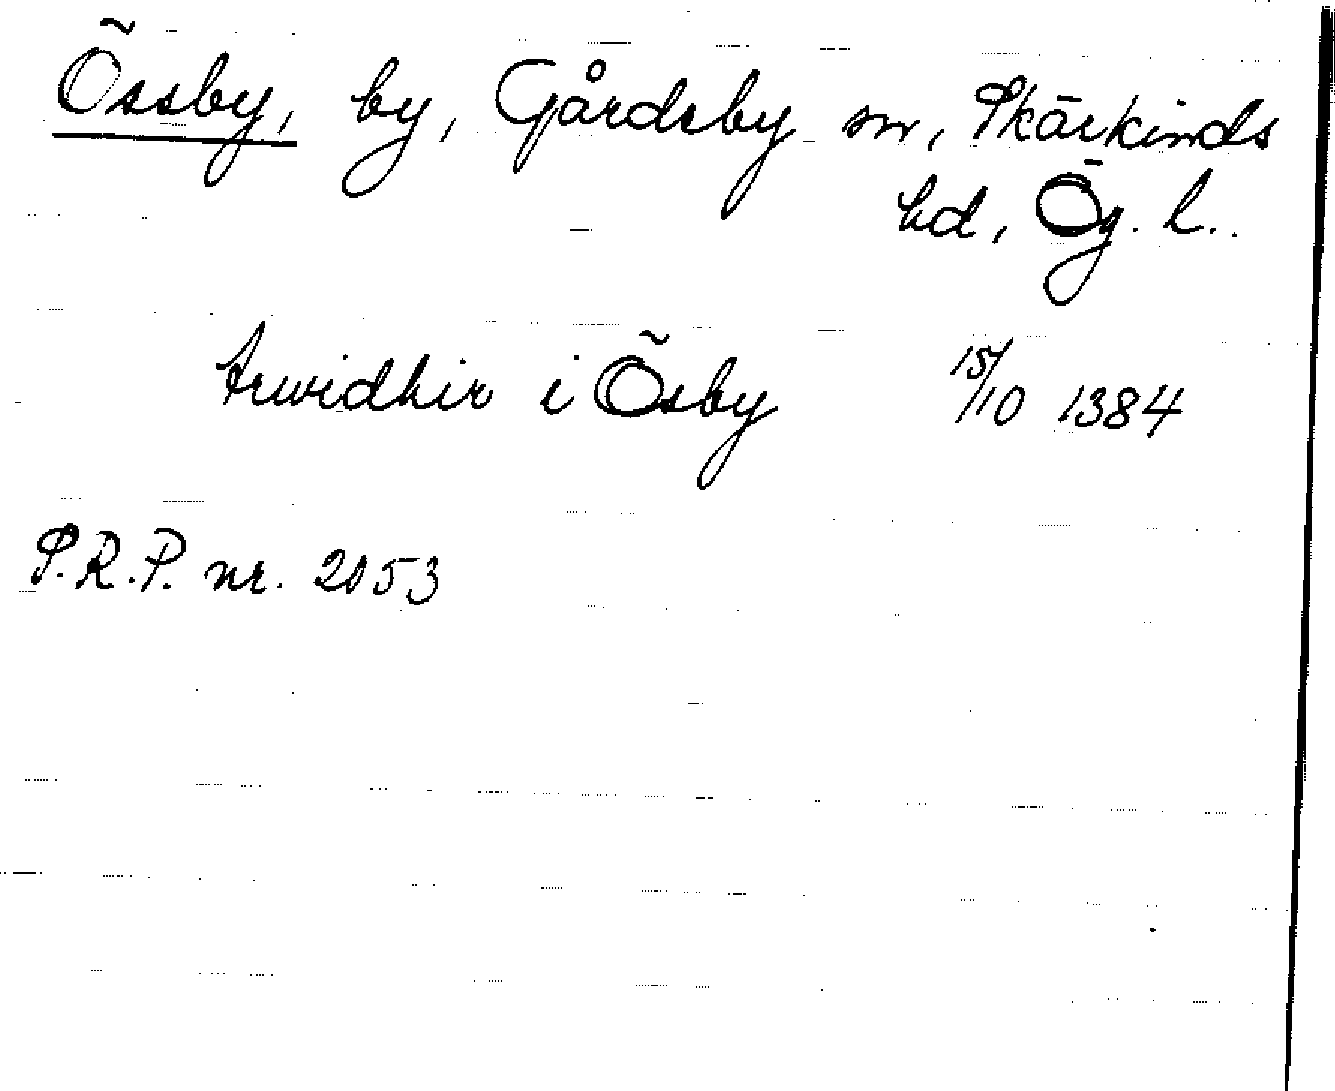 Össby, by, Gårdsby sn, Skärkinds
hd, Ög. l..
Arwidhir i Ösby 15/10 1384
S.R.P. nr. 2153